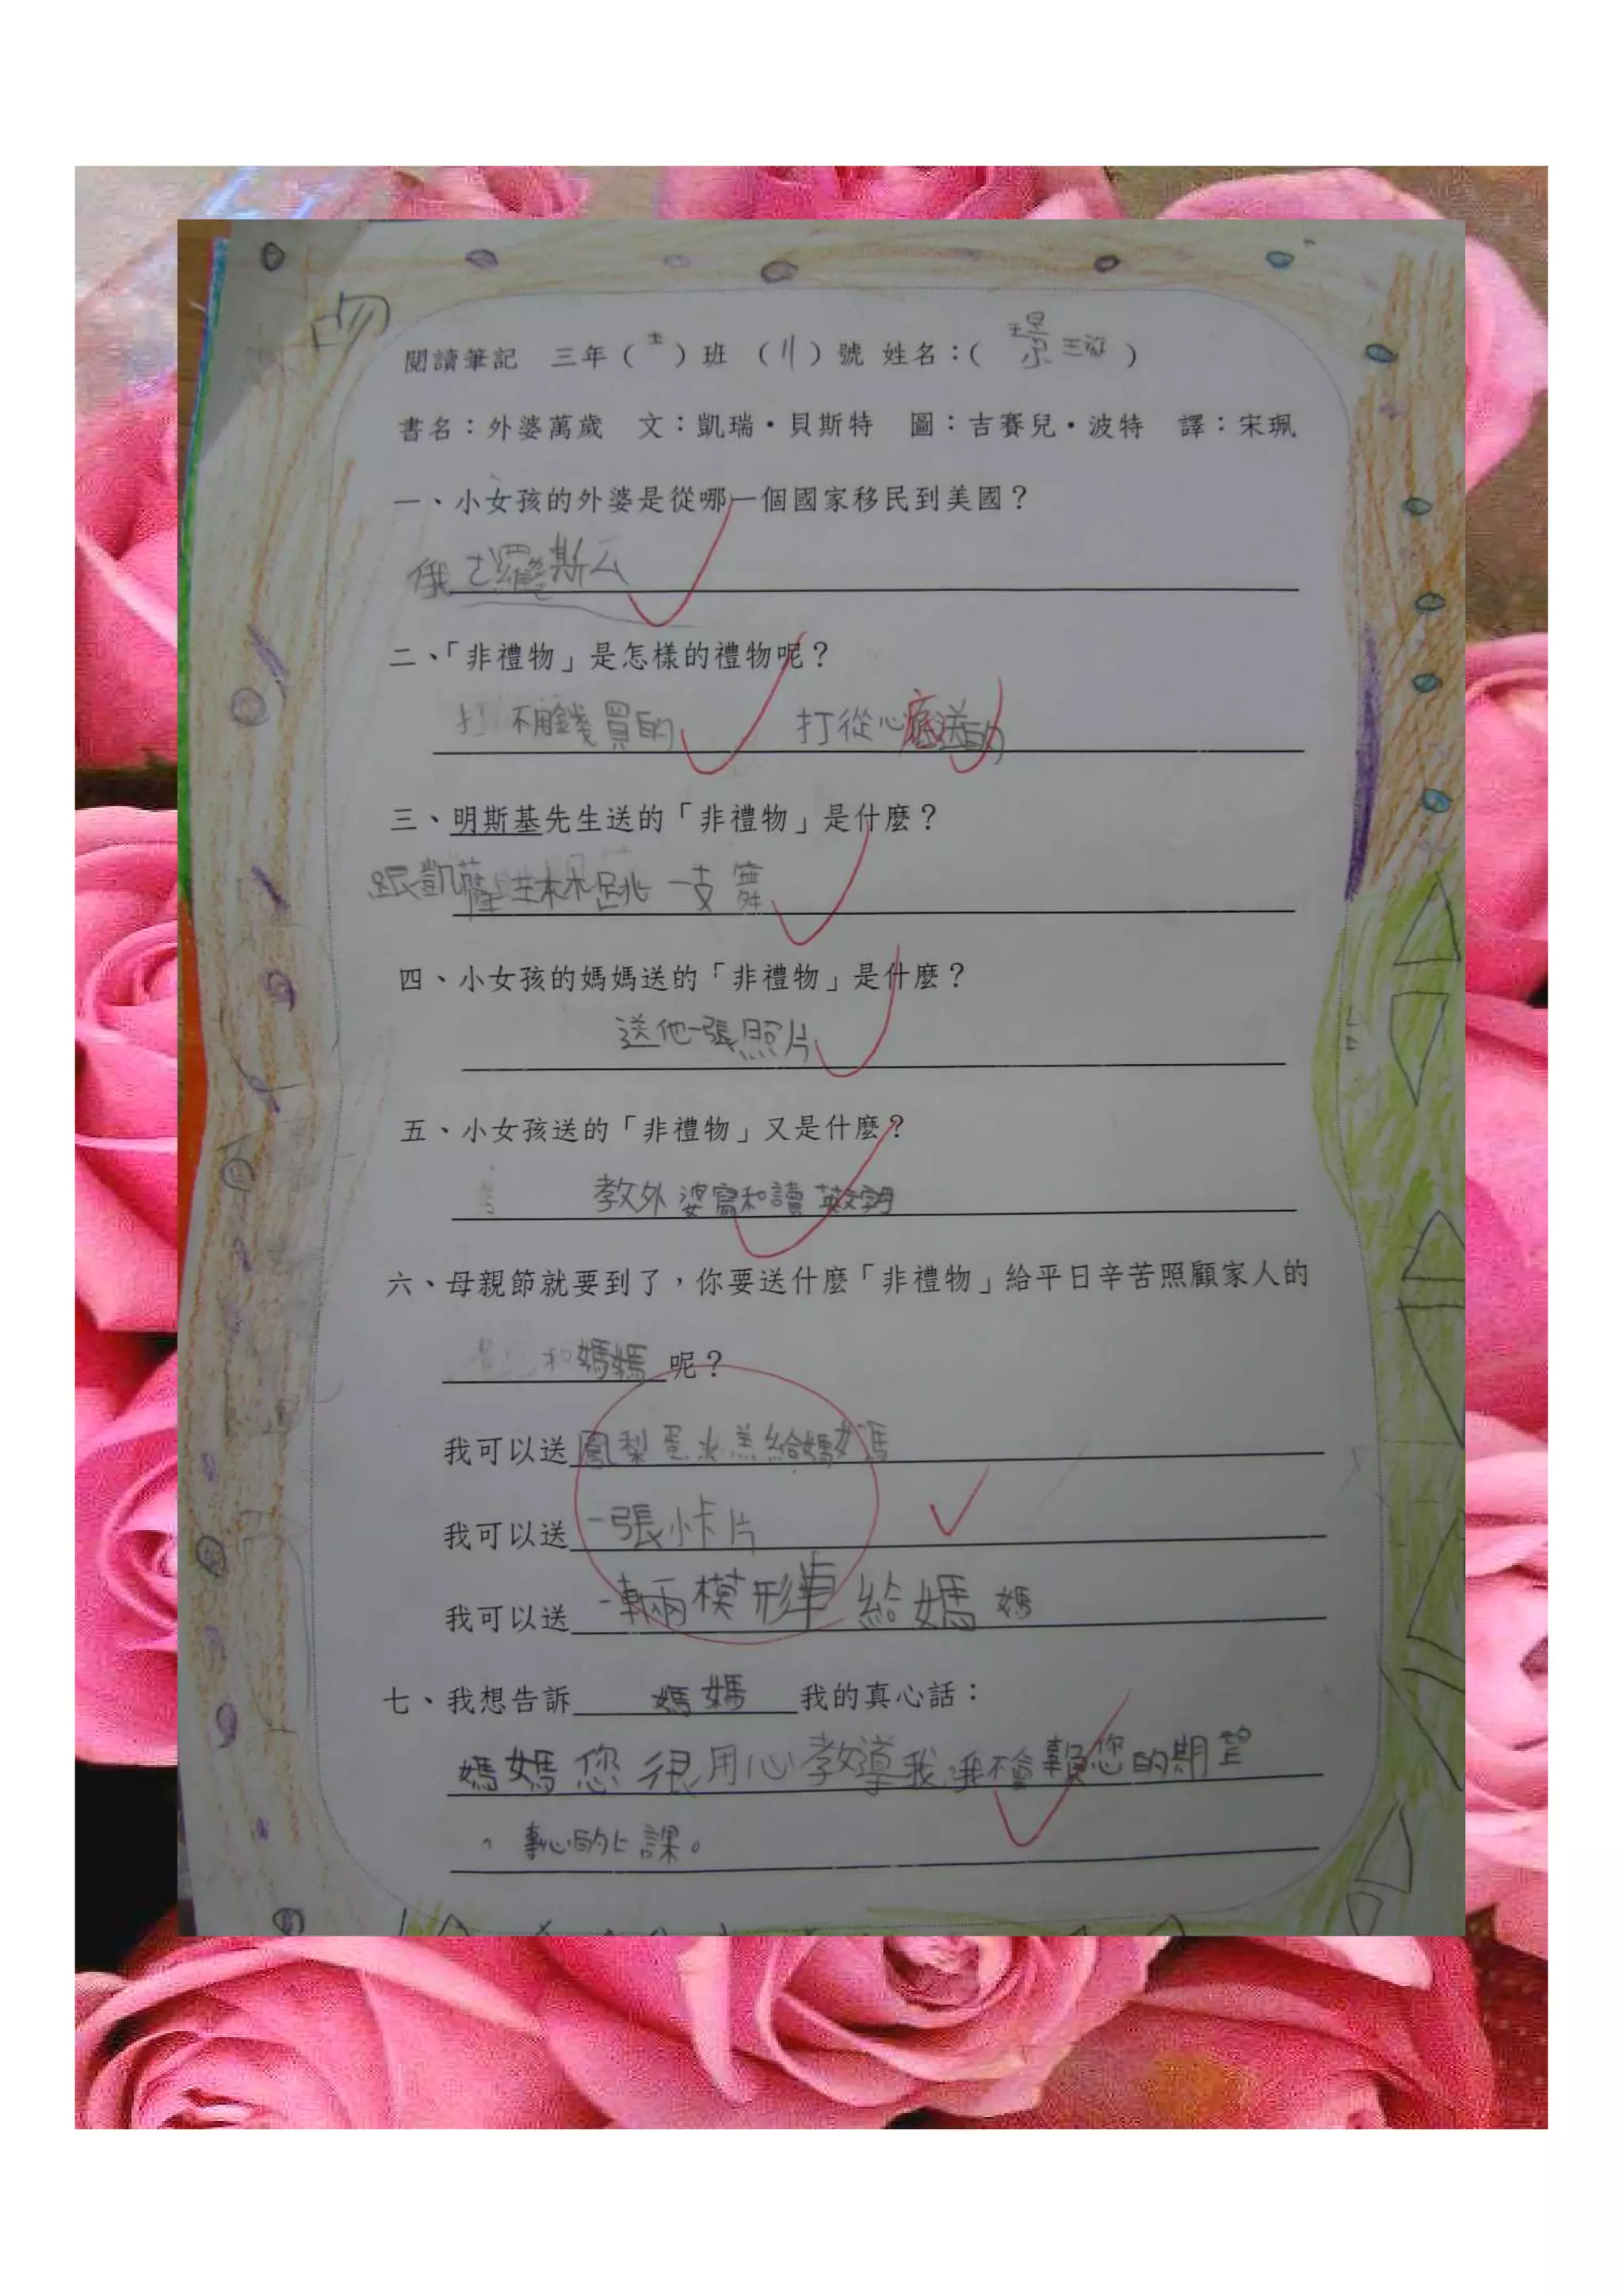 閱讀筆記 三年（士）班 （11）號 姓名：（璟璇）
書名：外婆萬歲 文：凱瑞・貝斯特 圖：吉賽兒・波特 譯：宋珮
一、小女孩的外婆是從哪一個國家移民到美國？
俄羅斯
二、「非禮物」是怎樣的禮物呢？
不用錢買的 打從心底送的
三、明斯基先生送的「非禮物」是什麼？
跟凱薩琳跳一支舞
四、小女孩的媽媽送的「非禮物」是什麼？
送他一張照片
五、小女孩送的「非禮物」又是什麼？
教外婆寫和讀英文字母
六、母親節就要到了，你要送什麼「非禮物」給平日辛苦照顧家人的
和媽媽呢？
我可以送鳳梨蛋給媽媽
我可以送一張小卡片
我可以送一輛模形車給媽媽
七、我想告訴媽媽我的真心話：
媽媽您很用心教導我我不會辜負您的期望
，專心的上課。